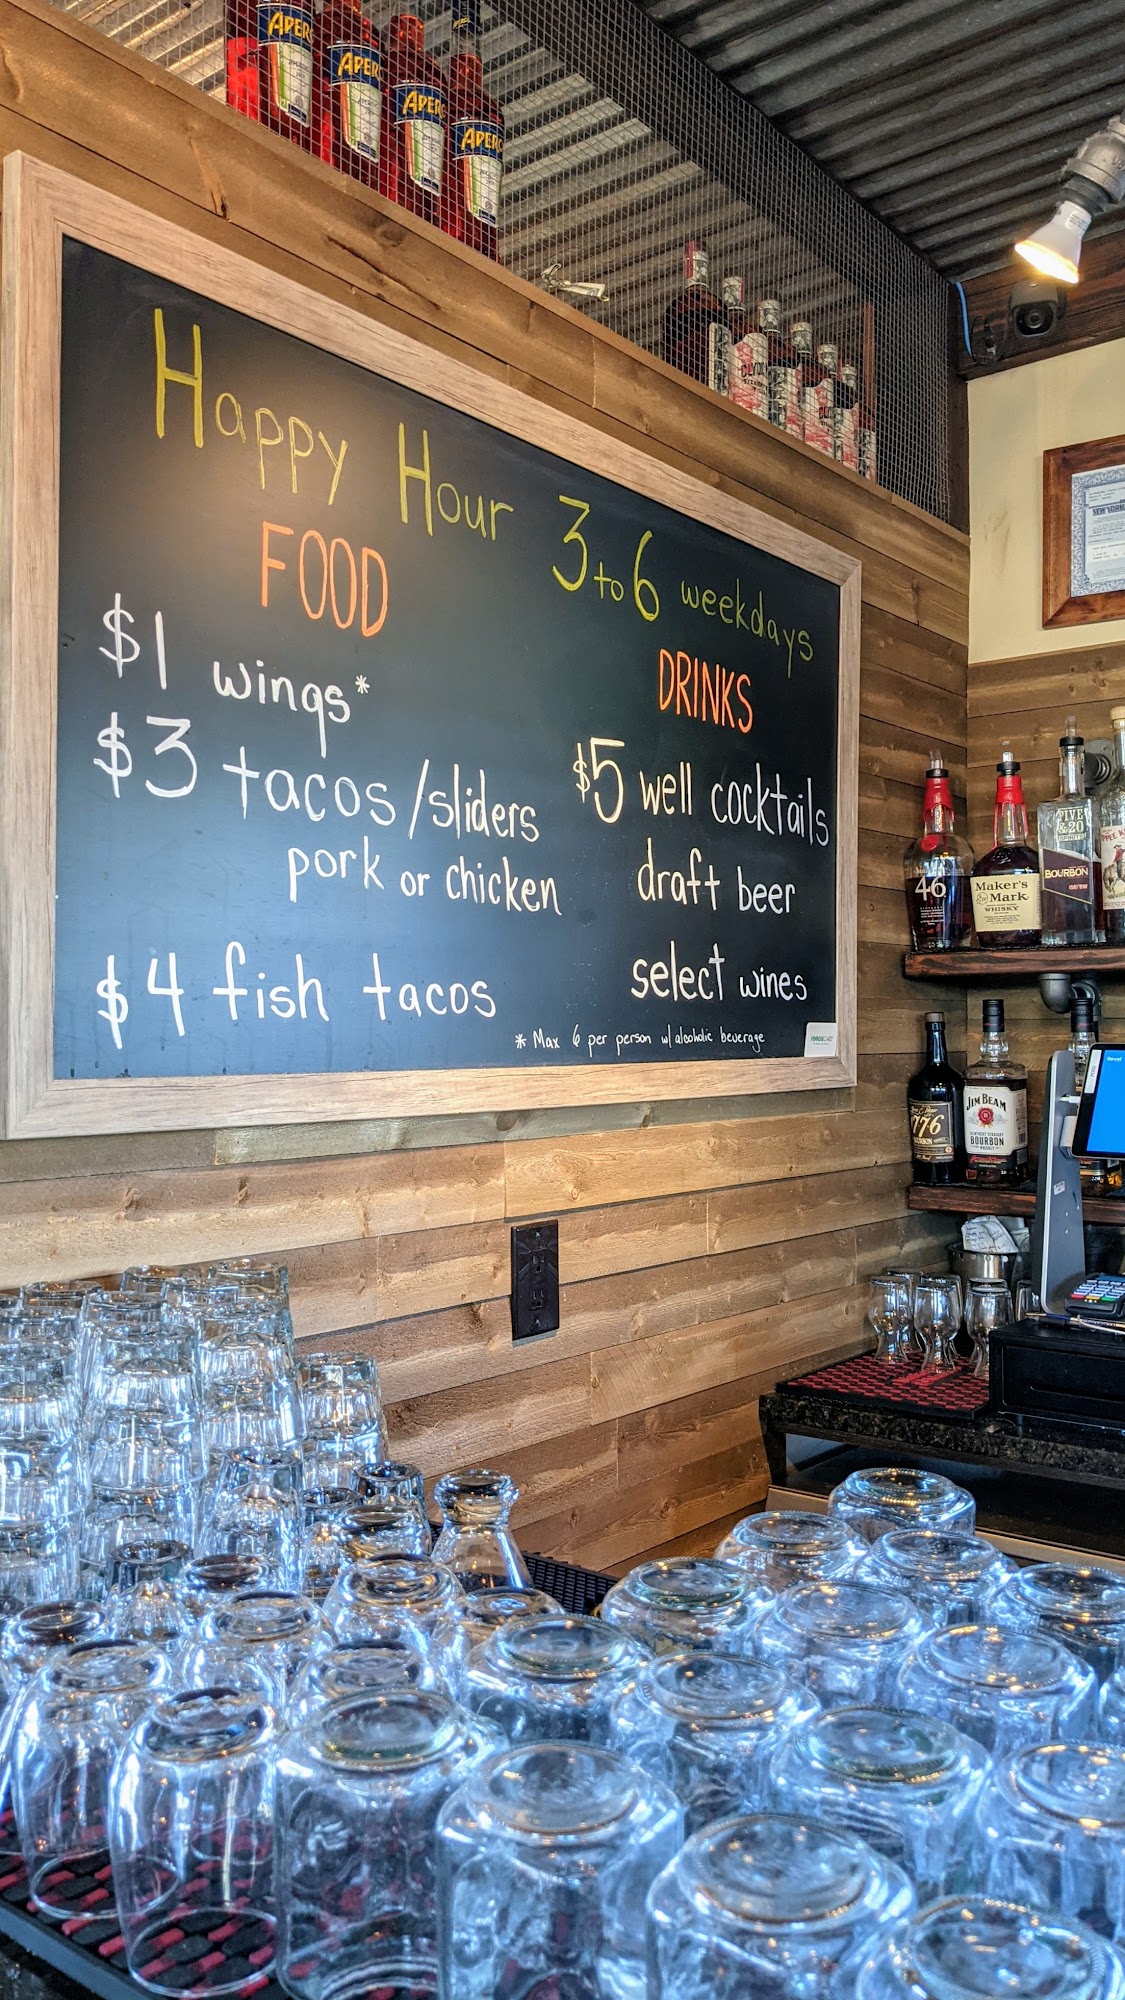 APER
APER
APER
APER
Happy Hour 3 to 6 weekdays
FOOD
$1 wings*
$3 tacos/sliders
pork or chicken
$4 fish tacos
DRINKS
$5 well cocktails
draft beer
select wines
* Max 6 per person w/ alcoholic beverage
NEW YORK
46
Maker's
Mark
WHISKY
FIVE
&20
SPIRITS
BOURBON
1776
BOURBON
JIM BEAM
BOURBON